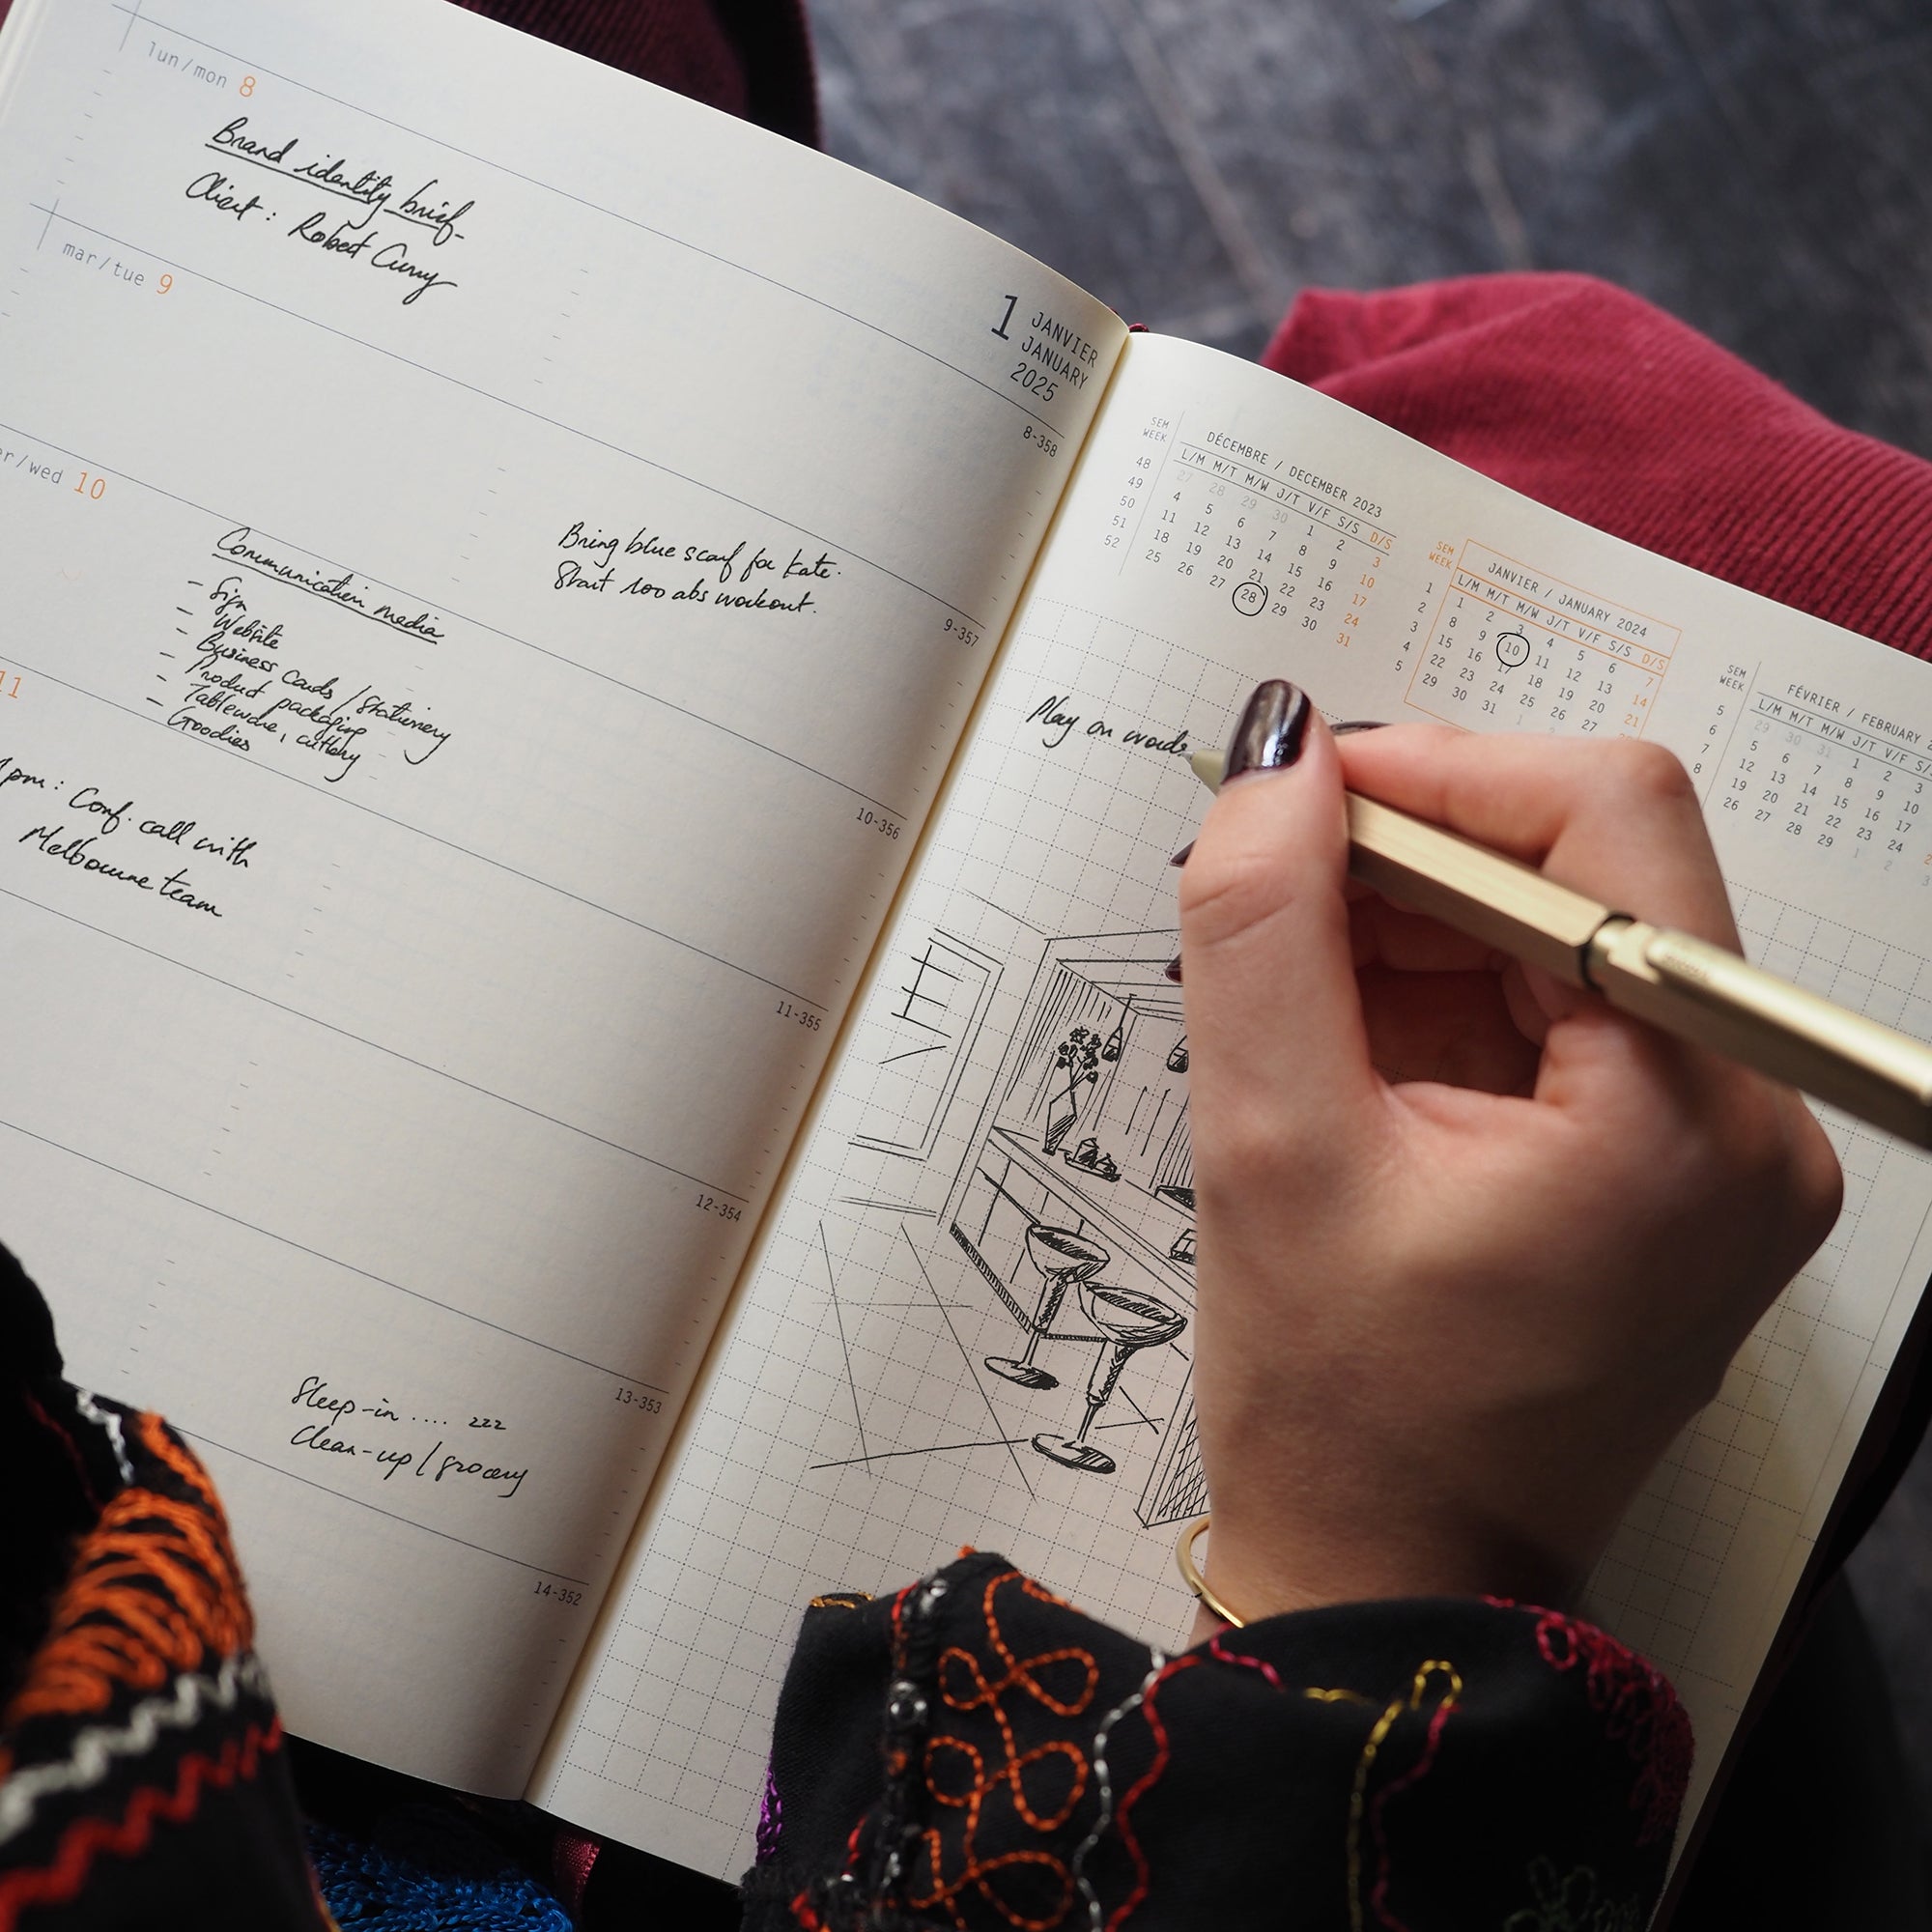 lun/mon 8
Brand identity brief
Client : Robert Curry
1 JANVIER
JANUARY
2025
8-358
mar/tue 9
Bring blue scarf for Kate.
Start 100 abs workout.
9-357
er/wed 10
Communication media
- Sign
- Website
- Business cards / Stationery
- Product packaging
- Tableware, cutlery
- Goodies
10-356
11
1pm : Conf. call with
Melbourne team
11-355
12-354
13-353
Sleep-in .... zzz
Clean-up / grocery
14-352
SEM
WEEK
DÉCEMBRE / DECEMBER 2023
L/M M/T M/W J/T V/F S/S D/S
48 27 28 29 30 1 2 3
49 4 5 6 7 8 9 10
50 11 12 13 14 15 16 17
51 18 19 20 21 22 23 24
52 25 26 27 28 29 30 31
SEM
WEEK
JANVIER / JANUARY 2024
L/M M/T M/W J/T V/F S/S D/S
1 1 2 3 4 5 6 7
2 8 9 10 11 12 13 14
3 15 16 17 18 19 20 21
4 22 23 24 25 26 27
5 29 30 31 1
SEM
WEEK
FÉVRIER / FEBRUARY
L/M M/T M/W J/T V/F S/
5 29 30 31 1 2 3
6 5 6 7 8 9 10
7 12 13 14 15 16 17
8 19 20 21 22 23 24
26 27 28 29 1 2 3
Play on words